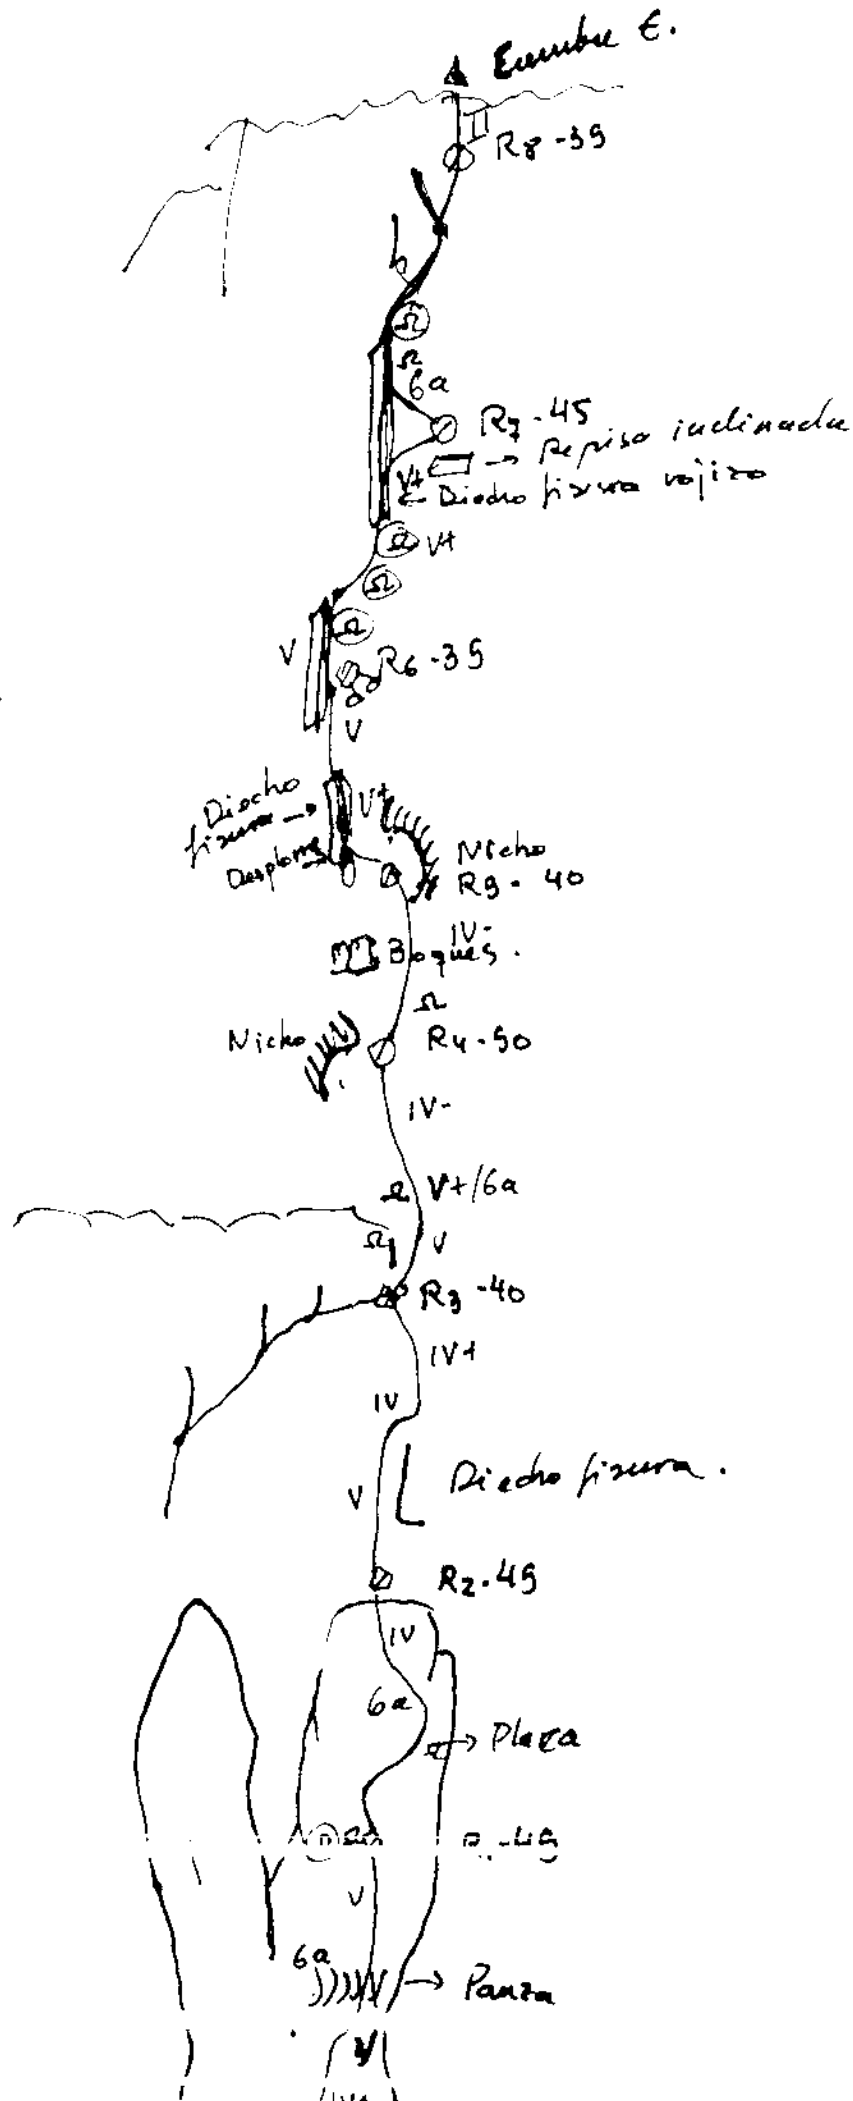 Cumbre E.
II
R8-35
b
Ω
Ω
6a
R7-45
→ Repisa inclinada
V+
← Diedro fisura rojizo
Ω V+
Ω
Ω
V
R6-35
V
Diedro
fisura →
V+
Desplome →
Nicho
R5-40
IV-
Boques.
Ω
Nicho
R4-50
IV-
Ω V+/6a
Ω
V
R3-40
IV+
IV
V
Diedro fisura.
R2-45
IV
6a
→ Placa
R1-45
V
6a
→ Panza
V